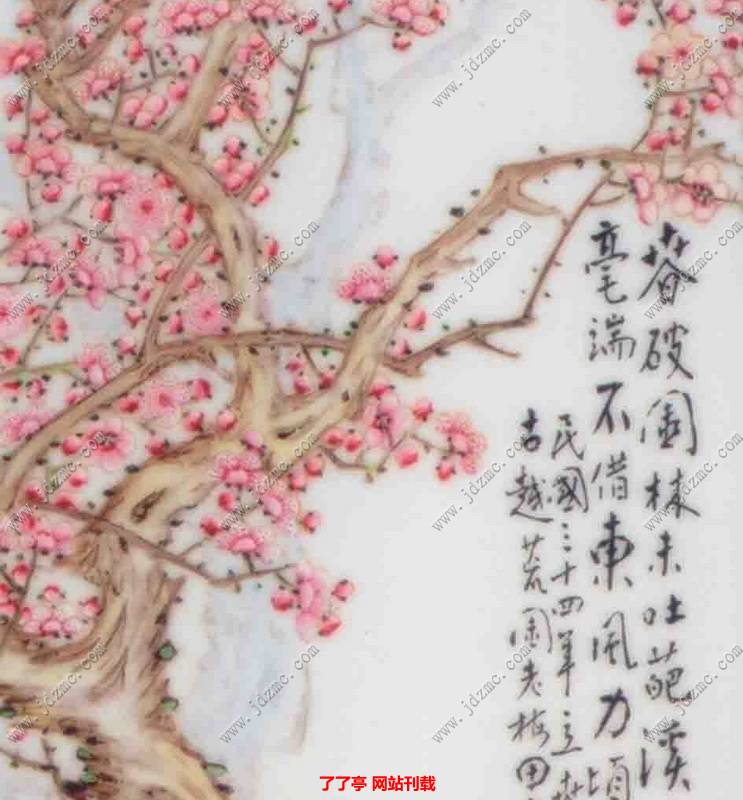 春破園林未吐葩溪
毫端不借東風力頃
民國三十四年立春
古越荒園老梅田
www.jdzmc.com
了了亭 网站刊载